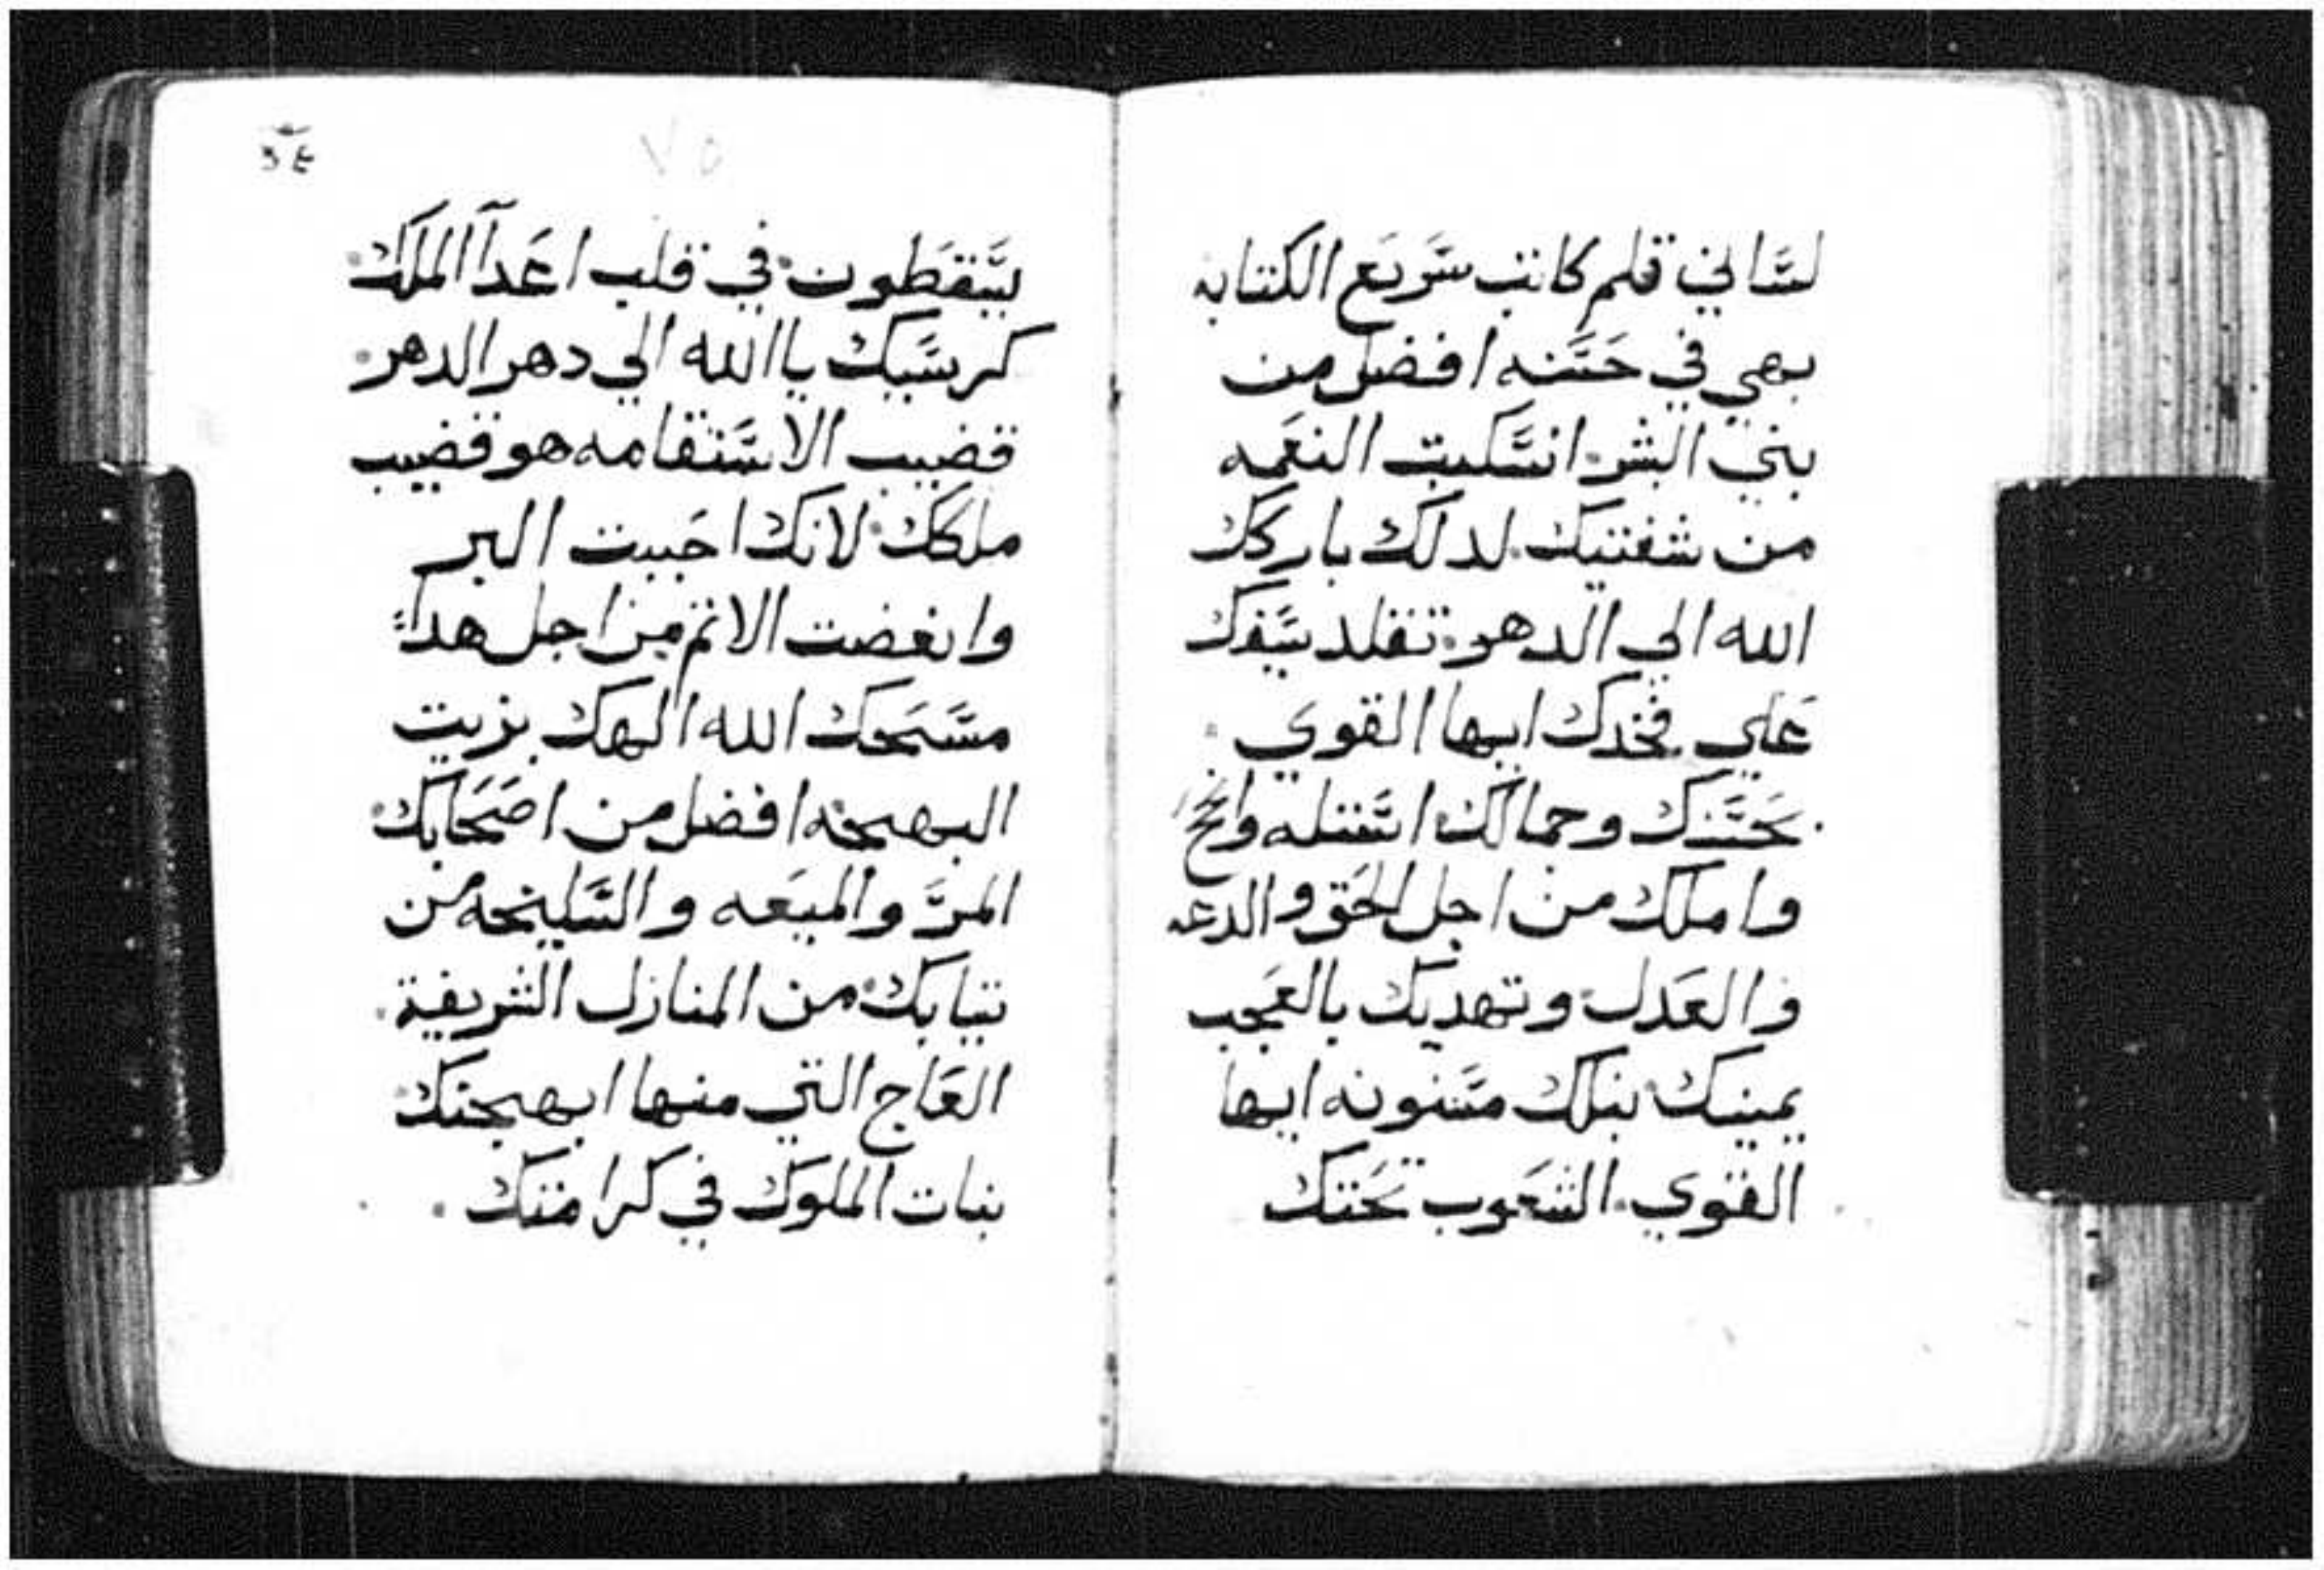 لساني قلم كاتب سريع الكتابه
بهي في حسنه افضل من
بني البشر. انسكبت النعمه
من شفتيك. لدلك باركك
الله الي الدهر. تقلد سيفك
علي فخدك ايها القوي.
بحسنك وجمالك استله وانجح
واملك من اجل الحق والدعه
والعدل. وتهديك بالعجب
يمينك نبلك مسنونه ايها
القوي. الشعوب تحتك
٧٥
يسقطون. في قلب اعدآ الملك.
كرسيك ياالله الي دهر الدهر.
قضيب الاستقامه هو قضيب
ملكك. لانك احببت البر
وابغضت الاثم من اجل هدا
مسحك الله الهك بزيت
البهجه افضل من اصحابك.
المر والميعه والسليخه من
تيابك. من المنازل الشريفة.
العاج التي منها ابهجتك.
بنات الملوك في كرامتك.